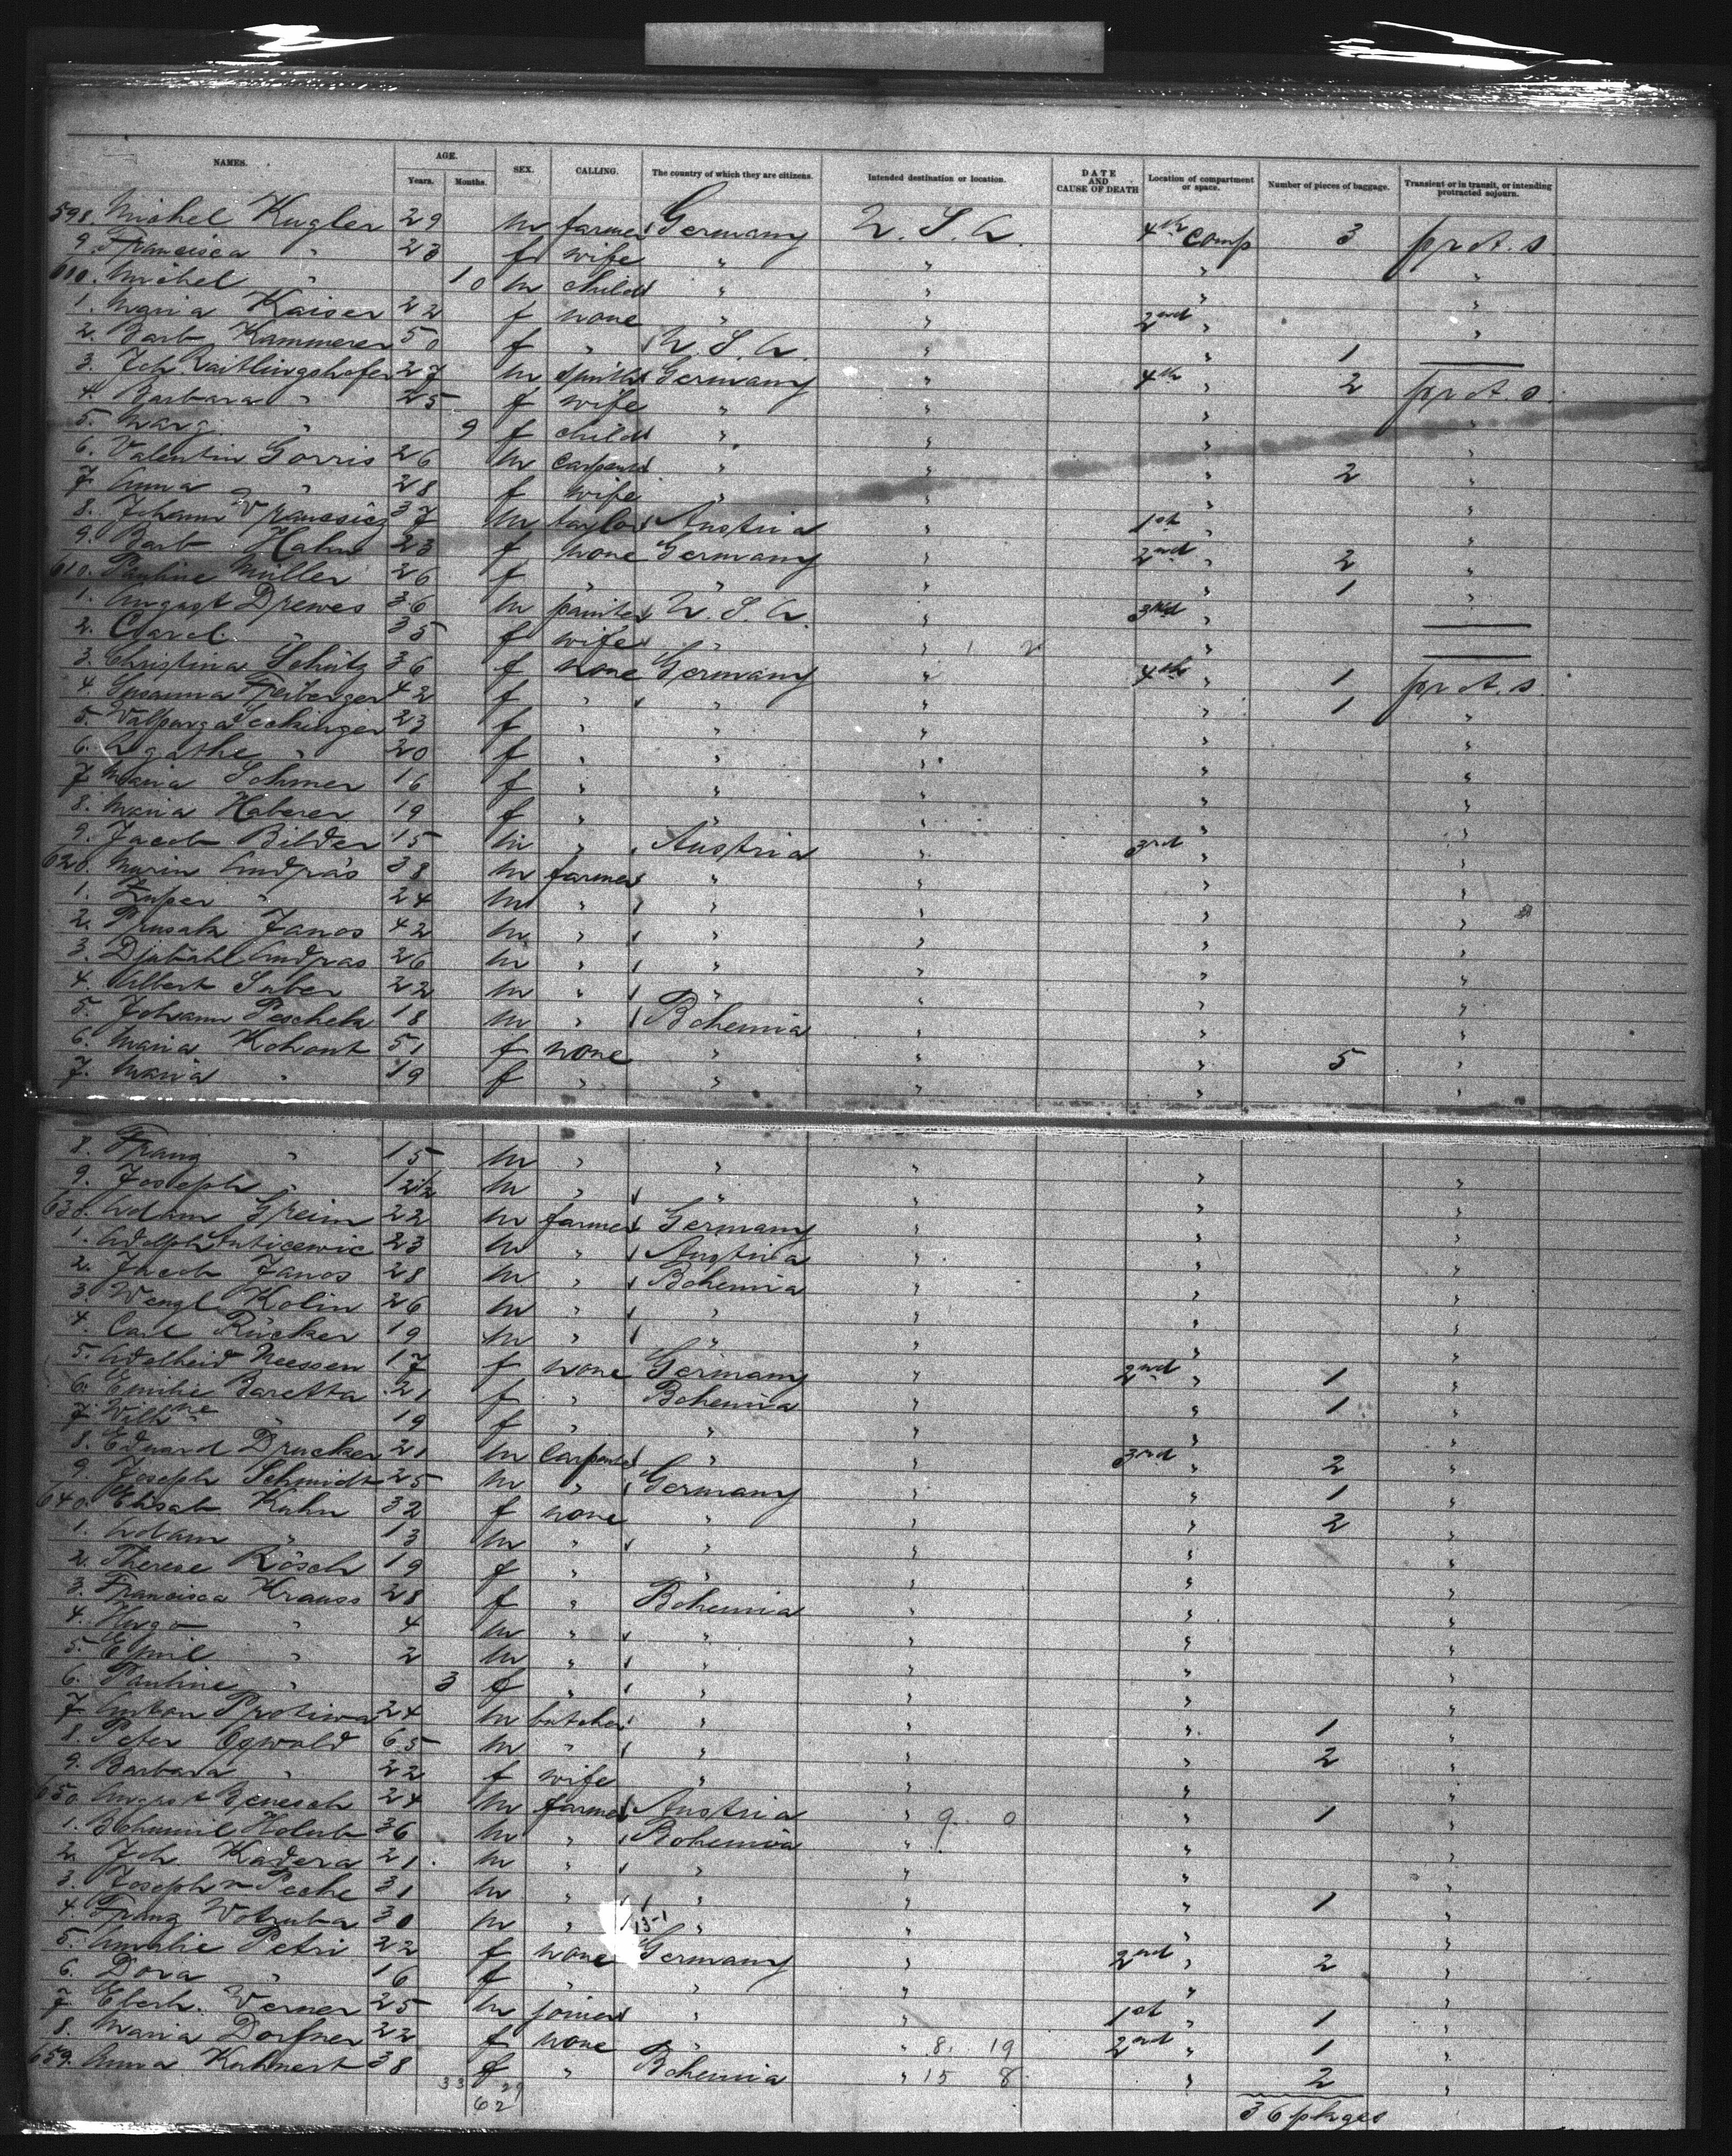 NAMES. AGE. Years. Months. SEX. CALLING. The country of which they are citizens. Intended destination or location. DATE AND CAUSE OF DEATH Location of compartment or space. Number of pieces of baggage. Transient or in transit, or intending protracted sojourn.
598. Michel Kugler 29 m farmer Germany U. S. A. 4th Comp 3 prot. s.
9. Francisca " 23 f wife " " " "
600. Michel " 10 m child " " " "
1. Maria Kaiser 22 f none " " 2nd " "
2. Barb Kammerer 50 f " U. S. A. " " 1 —
3. Joh Raitlingshofer 27 m smith Germany " 4th " 2 prot. s.
4. Barbara " 25 f wife " " " "
5. Marg " 9 f child " " " "
6. Valentin Gorris 26 m carpenter " " " 2 "
7. Anna " 28 f wife " " " "
8. Johann 37 m taylor Austria " 1st " "
9. Barb Hahn 23 f none Germany " 2nd " 2 "
610. Pauline Müller 26 f " " " " 1 "
1. August Drewes 36 m painter U. S. A. " 3rd " —
2. Carol. " 35 f wife " " " —
3. Christina Schütz 36 f none Germany " 4th " 1 prot. s.
4. Susanna Freiberger 42 f " " " " 1 "
5. Walpurga 23 f " " " " "
6. Agathe " 20 f " " " " "
7. Maria 16 f " " " " "
8. Maria Haberer 19 f " " " " "
9. Jacob Bilder 15 m " Austria " 3rd " "
620. Murin Andras 38 m farmer " " " "
1. " 24 m " " " " "
2. Prusak Janos 42 m " " " " "
3. Andras 26 m " " " " "
4. Albert 22 m " " " " "
5. Johann Peschek 18 m " Bohemia " " "
6. Maria Kohout 51 f none " " " 5 "
7. Maria " 19 f " " " " "
8. Franz " 15 m " " " " "
9. Joseph " m " " " " "
630. Adam Greim 22 m farmer Germany " " "
1. Adolph 23 m " Austria " " "
2. Jacob Janos 28 m " Bohemia " " "
3. Wenzl Kolin 26 m " " " " "
4. Carl Rücker 19 m " " " " "
5. Adelheid Neessen 17 f none Germany " 2nd " 1 "
6. Emilie Baretta 21 f " Bohemia " " 1 "
7. Wilhne " 19 f " " " " "
8. Eduard Drucker 21 m carpenter " " 3rd " 2 "
9. Joseph Schmidt 25 m " Germany " " 1 "
640. Elisab Kuhn 32 f none " " " 2 "
1. Adam " 13 m " " " " "
2. Therese Rösch 19 f " " " " "
3. Francisca Krauss 28 f " Bohemia " " "
4. Hugo " 4 m " " " " "
5. Emil " 2 m " " " " "
6. Pauline " 3 f " " " " "
7. Anton Protiwa 24 m butcher " " " 1 "
8. Peter 65 m " " " " 2 "
9. Barbara " 22 f wife " " " "
650. August Benesch 24 m farmer Austria " 9 0 " 1 "
1. Bohumil Holub 36 m " Bohemia " " "
2. Joh. Kadera 21 m " " " " "
3. Joseph 31 m " " " " 1 "
4. Franz Wotruba 30 m " " " " "
5. Amalie Petri 22 f none Germany " 2nd " 2 "
6. Dora " 16 f " " " " "
7. Eberh. Werner 25 m joiner " " 1st " 1 "
8. Maria Dorfner 22 f none " " 8. 19 2nd " 1 "
659. Anna Kuhnert 38 f " Bohemia " 15 8 " 2 "
33 29
62
36 pkges